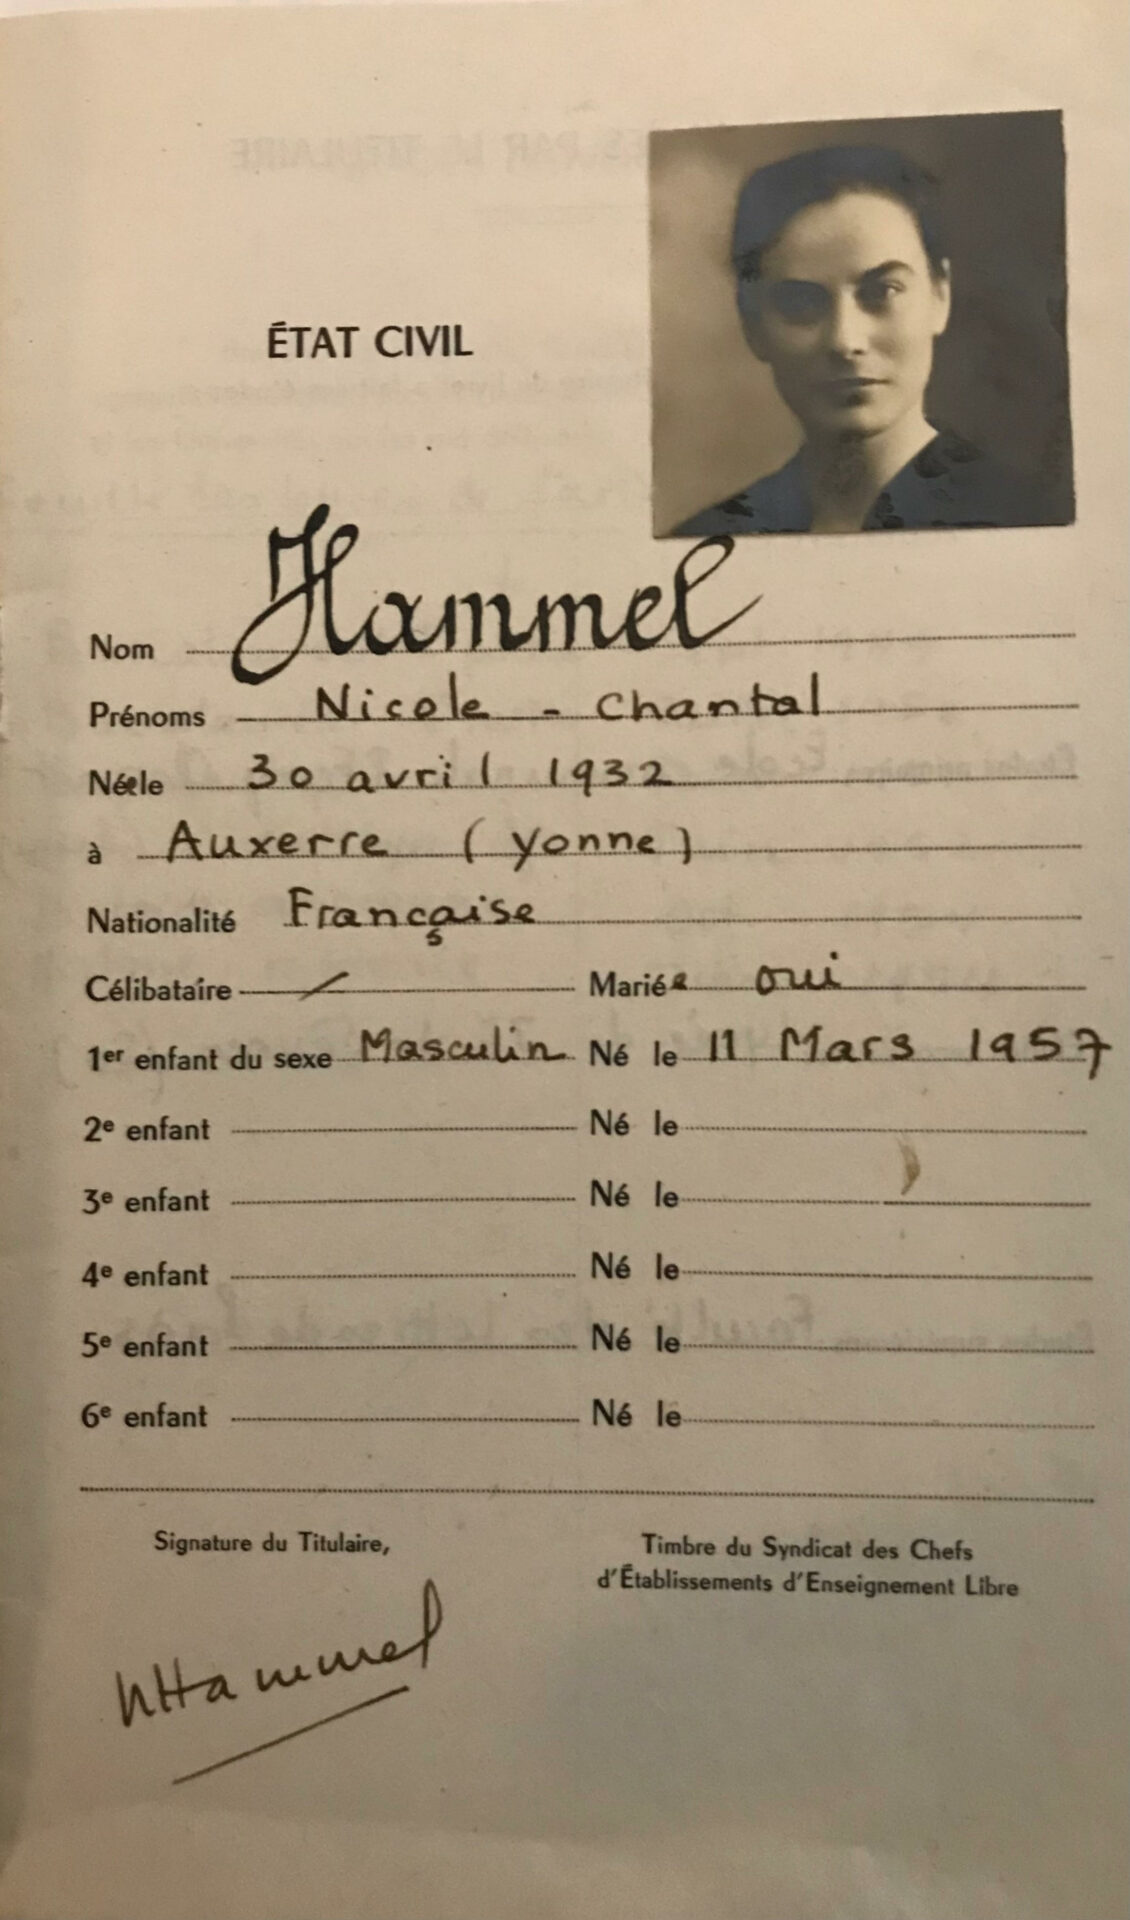 ÉTAT CIVIL
Nom Hammel
Prénoms Nicole - Chantal
Née le 30 avril 1932
à Auxerre (Yonne)
Nationalité Française
Célibataire / Mariée oui
1er enfant du sexe Masculin Né le 11 Mars 1957
2e enfant Né le
3e enfant Né le
4e enfant Né le
5e enfant Né le
6e enfant Né le
Signature du Titulaire,
Timbre du Syndicat des Chefs
d'Établissements d'Enseignement Libre
NHammel